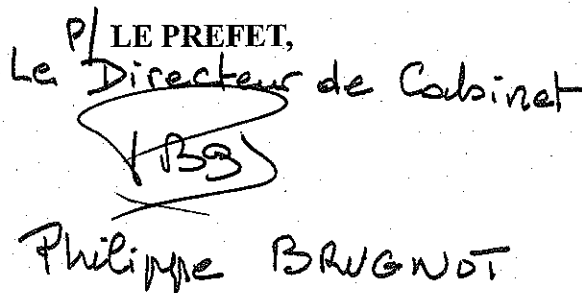 P/ LE PREFET,
Le Directeur de Cabinet
Philippe BRUGNOT